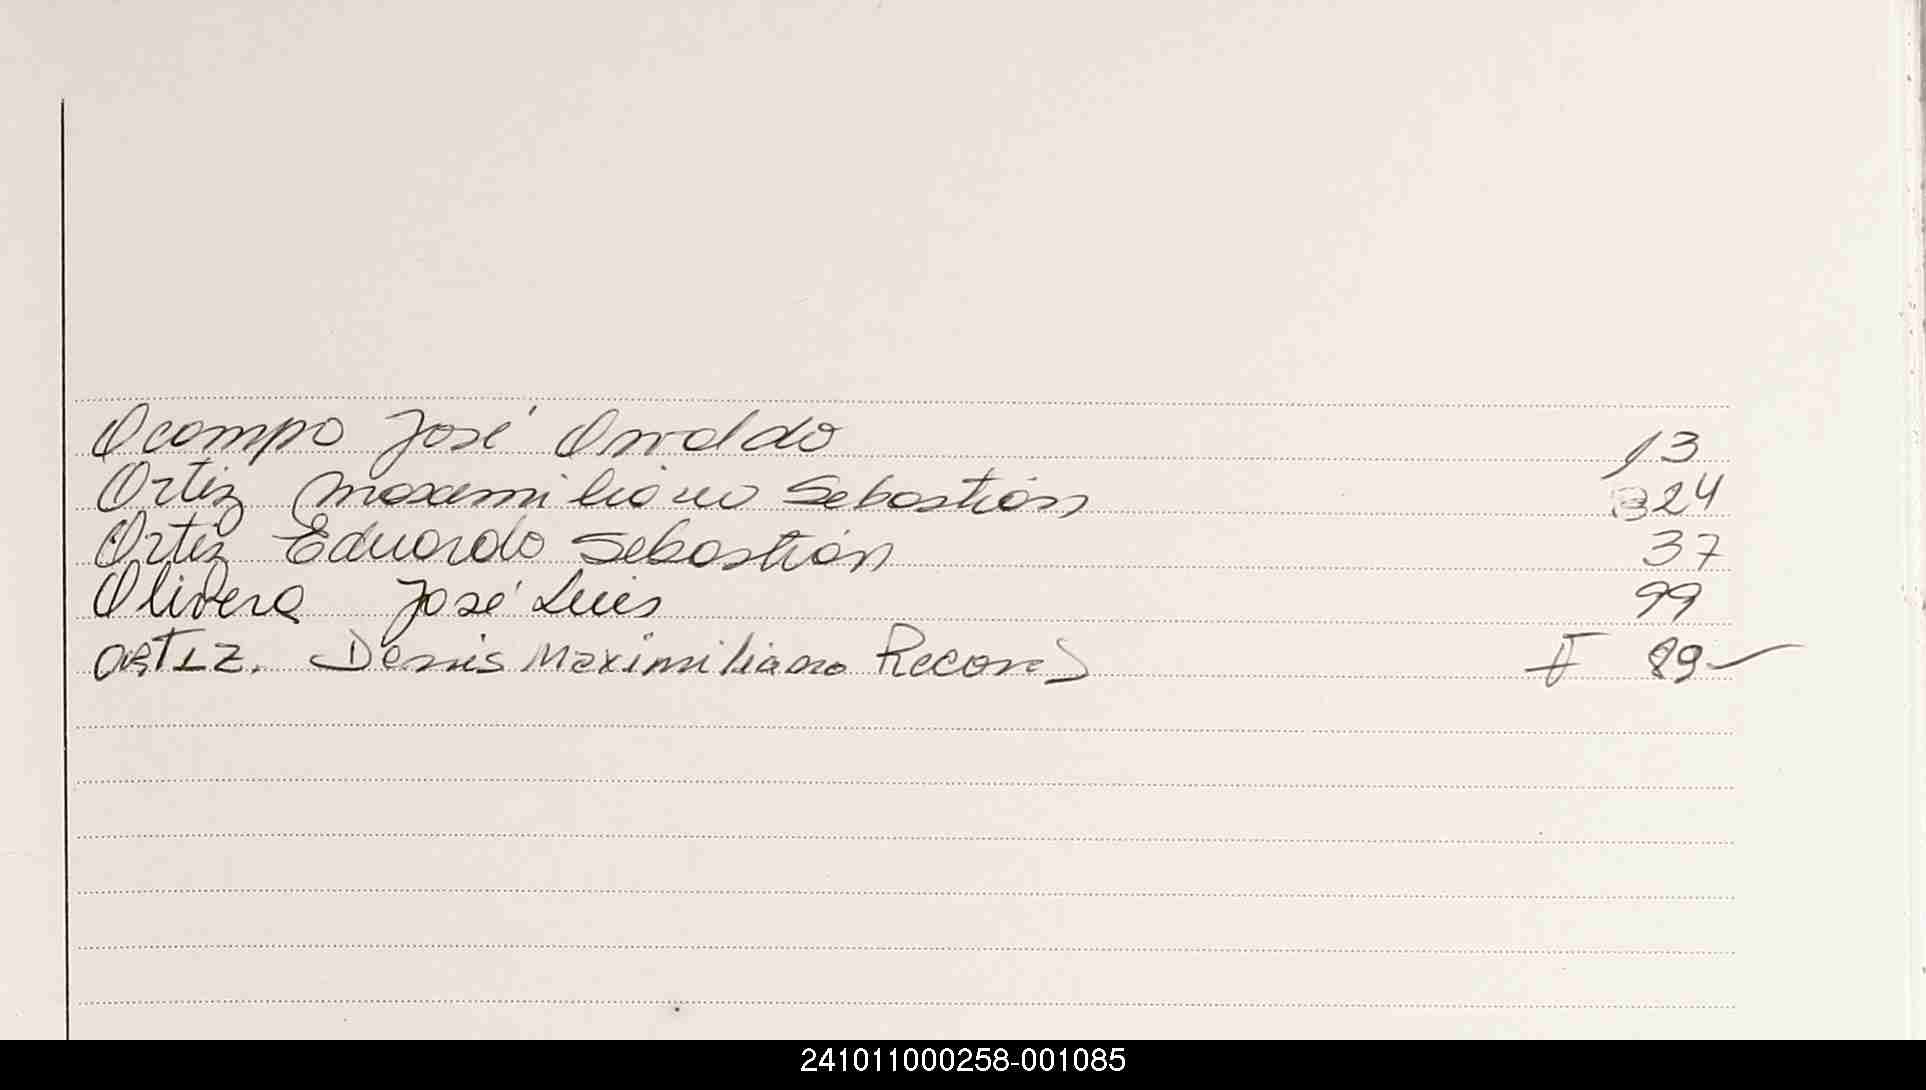 Ocampo José Osvaldo 13
Ortiz Maximiliano Sebastián 24
Ortiz Eduardo Sebastián 37
Olivera José Luis 99
Ortiz. Denis Maximiliano 89
241011000258-001085